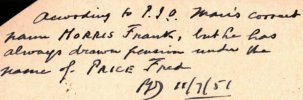 According to P.I.O. Man's correct
name MORRIS Frank, but he has
always drawn pension under the
name of PRICE Fred
11/7/51